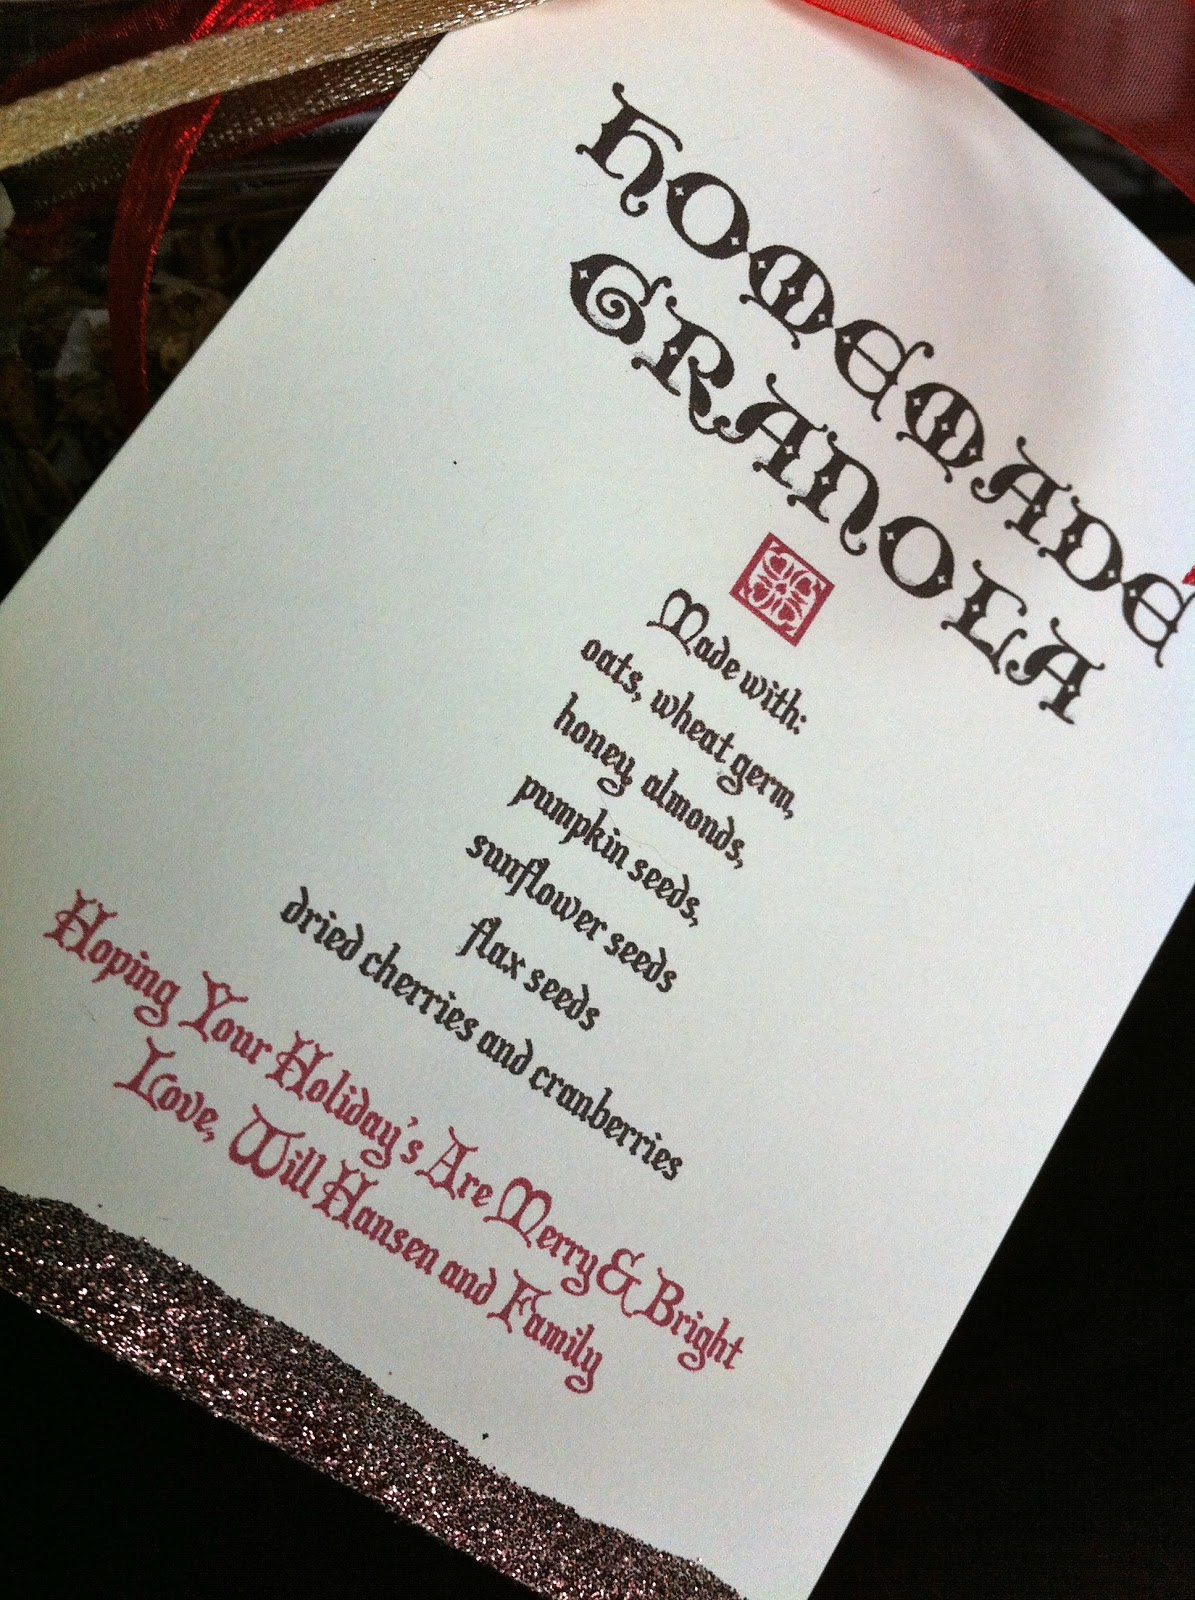 HOMEMADE
GRANOLA
Made with:
oats, wheat germ,
honey, almonds,
pumpkin seeds,
sunflower seeds
flax seeds
dried cherries and cranberries
Hoping Your Holiday's Are Merry & Bright
Love, Will Hansen and Family